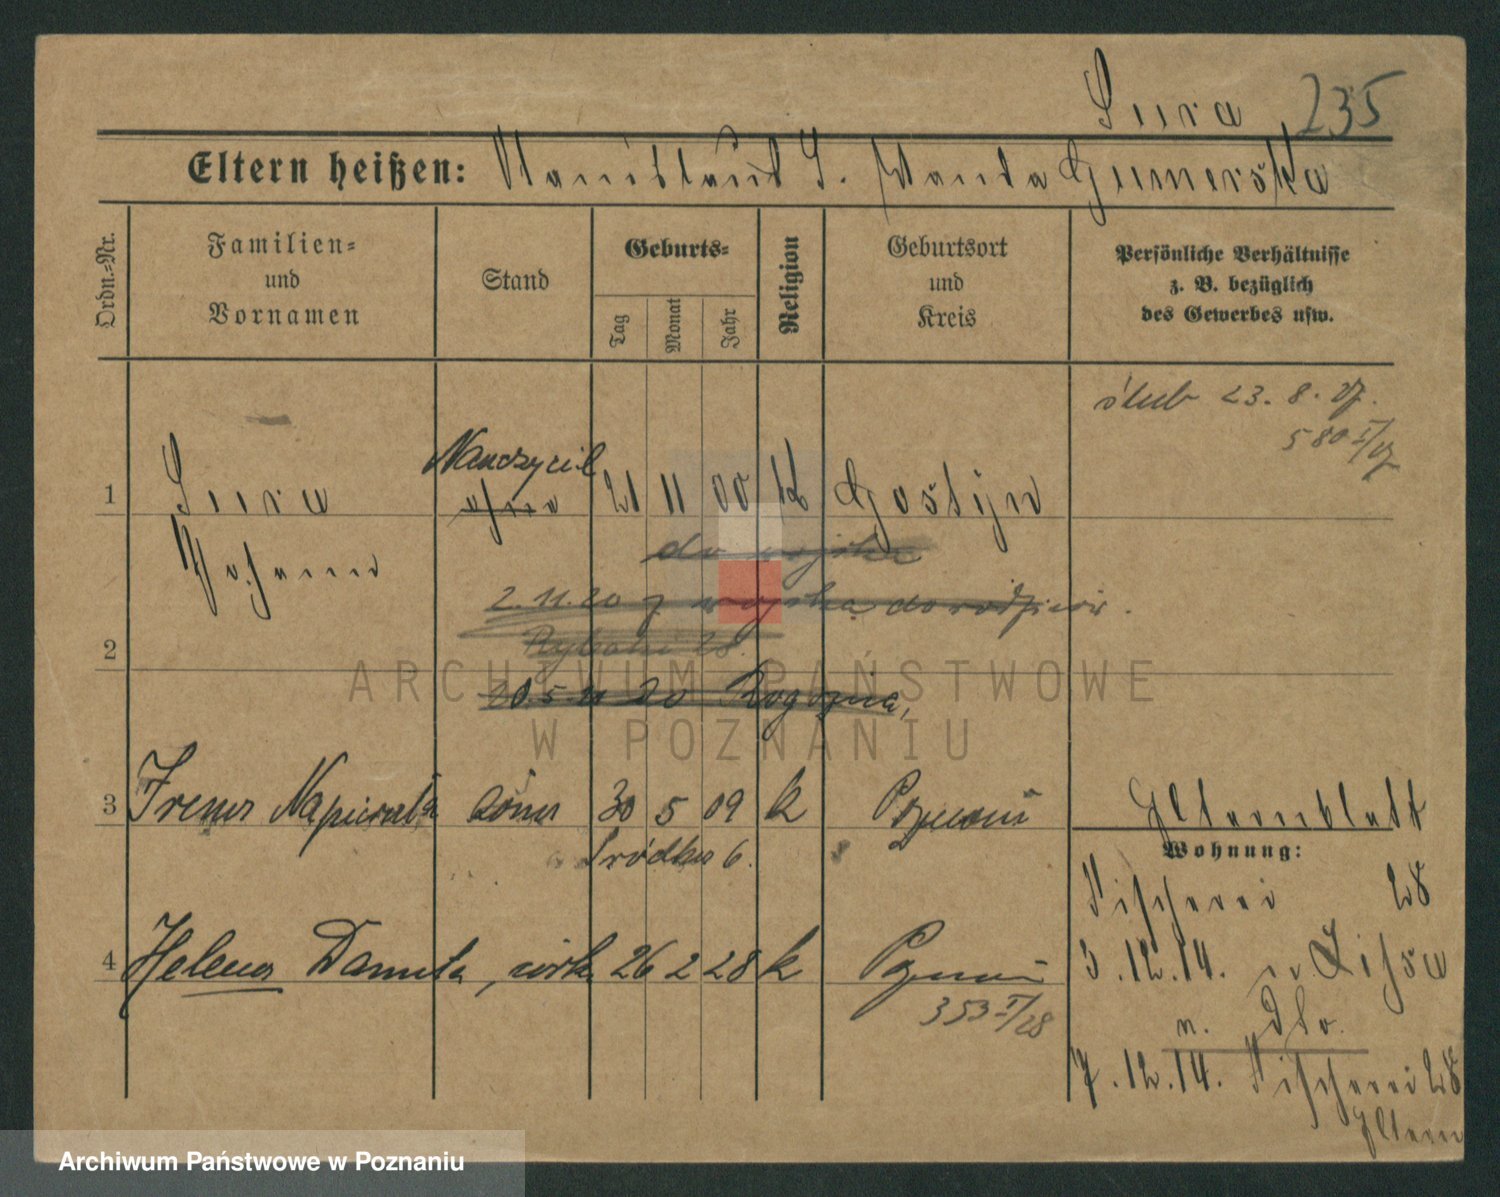 Sura 235
Eltern heißen: Stanislaus S. Wanda Gumerska
Ordn.=Nr.
Familien=
und
Vornamen
Stand
Geburts=
Tag
Monat
Jahr
Religion
Geburtsort
und
Kreis
Persönliche Verhältnisse
z. B. bezüglich
des Gewerbes usw.
ślub 23. 8. 27.
580 I/27
1
Sura
Nauczyciel
21 11 00 k Gostyn
Johann
do wojska
2.11.20 z wojska do rodziców.
2
Rybaki 28.
20.5.21 do Rogoźna,
3 Irena Napierała żona 30 5 09 k Poznań
Elternblatt
Śródka 6.
Wohnung:
Fischerei 28
4 Helena Danuta, córka 26 2 28 k Poznań
3.12.14. n Lissa
353 I/28
n. Dlo.
7.12.14. Fischerei 28
Eltern
ARCHIWUM PAŃSTWOWE
W POZNANIU
Archiwum Państwowe w Poznaniu